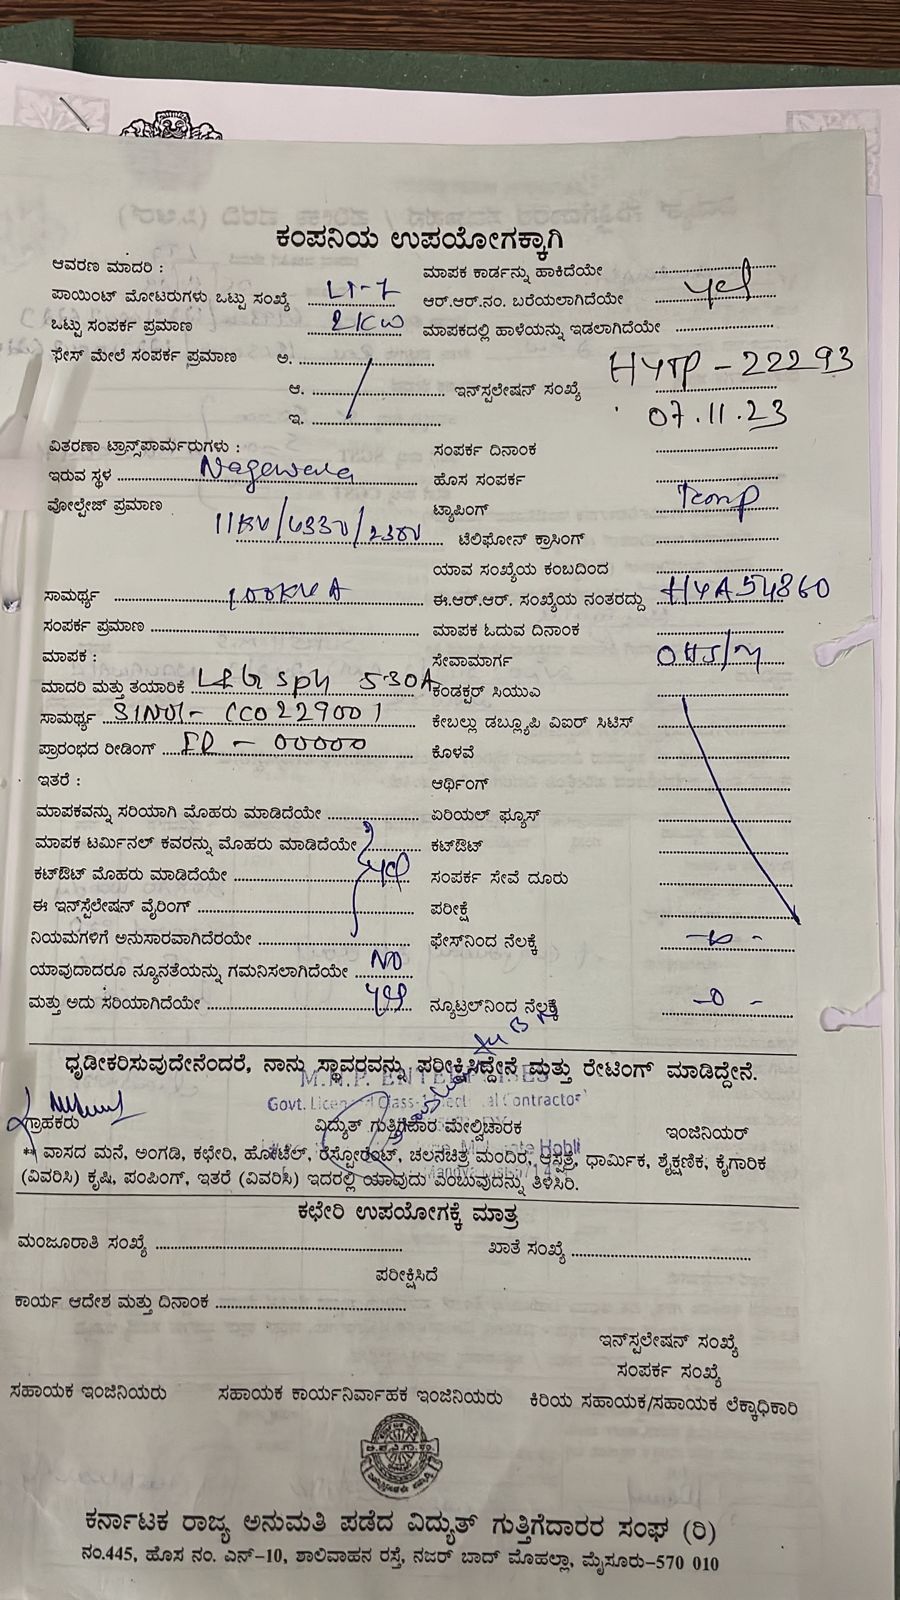 ಕಂಪನಿಯ ಉಪಯೋಗಕ್ಕಾಗಿ
ಆವರಣ ಮಾದರಿ : ಮಾಪಕ ಕಾರ್ಡನ್ನು ಹಾಕಿದೆಯೇ
ಪಾಯಿಂಟ್ ಮೋಟರುಗಳು ಒಟ್ಟು ಸಂಖ್ಯೆ LT-7 ಆರ್.ಆರ್.ನಂ. ಬರೆಯಲಾಗಿದೆಯೇ yes
ಒಟ್ಟು ಸಂಪರ್ಕ ಪ್ರಮಾಣ 2KW ಮಾಪಕದಲ್ಲಿ ಹಾಳೆಯನ್ನು ಇಡಲಾಗಿದೆಯೇ
ಫೇಸ್ ಮೇಲೆ ಸಂಪರ್ಕ ಪ್ರಮಾಣ ಅ.
ಆ. ಇನ್‌ಸ್ಪಲೇಷನ್ ಸಂಖ್ಯೆ HYTP - 22293
ಇ. 07.11.23
ವಿತರಣಾ ಟ್ರಾನ್ಸ್‌ಪಾರ್ಮರುಗಳು : ಸಂಪರ್ಕ ದಿನಾಂಕ
ಇರುವ ಸ್ಥಳ Nagawara ಹೊಸ ಸಂಪರ್ಕ
ವೋಲ್ಟೇಜ್ ಪ್ರಮಾಣ ಟ್ಯಾಪಿಂಗ್ Temp
11KV/433V/230V ಟೆಲಿಫೋನ್ ಕ್ರಾಸಿಂಗ್
ಯಾವ ಸಂಖ್ಯೆಯ ಕಂಬದಿಂದ
ಸಾಮರ್ಥ್ಯ 100KVA ಈ.ಆರ್.ಆರ್. ಸಂಖ್ಯೆಯ ನಂತರದ್ದು HYA54860
ಸಂಪರ್ಕ ಪ್ರಮಾಣ ಮಾಪಕ ಓದುವ ದಿನಾಂಕ
ಮಾಪಕ : ಸೇವಾಮಾರ್ಗ
ಮಾದರಿ ಮತ್ತು ತಯಾರಿಕೆ L&G 5-30A ಕಂಡಕ್ಟರ್ ಸಿಯುಎ
ಸಾಮರ್ಥ್ಯ SlNo:- CC0229001 ಕೇಬಲ್ಲು ಡಬ್ಲ್ಯೂಪಿ ವಿಐರ್ ಸಿಟಿಸ್
ಪ್ರಾರಂಭದ ರೀಡಿಂಗ್ - 00000 ಕೊಳವೆ
ಇತರೆ : ಆರ್ಥಿಂಗ್
ಮಾಪಕವನ್ನು ಸರಿಯಾಗಿ ಮೊಹರು ಮಾಡಿದೆಯೇ ಏರಿಯಲ್ ಫ್ಯೂಸ್
ಮಾಪಕ ಟರ್ಮಿನಲ್ ಕವರನ್ನು ಮೊಹರು ಮಾಡಿದೆಯೇ ಕಟ್‌ಔಟ್
ಕಟ್‌ಔಟ್ ಮೊಹರು ಮಾಡಿದೆಯೇ yes ಸಂಪರ್ಕ ಸೇವೆ ದೂರು
ಈ ಇನ್‌ಸ್ಟೆಲೇಷನ್ ವೈರಿಂಗ್ ಪರೀಕ್ಷೆ
ನಿಯಮಗಳಿಗೆ ಅನುಸಾರವಾಗಿದೆರಯೇ ಫೇಸ್‌ನಿಂದ ನೆಲಕ್ಕೆ
ಯಾವುದಾದರೂ ನ್ಯೂನತೆಯನ್ನು ಗಮನಿಸಲಾಗಿದೆಯೇ NO
ಮತ್ತು ಅದು ಸರಿಯಾಗಿದೆಯೇ yes ನ್ಯೂಟ್ರಲ್‌ನಿಂದ ನೆಲ್ಲಕ್ಕೆ
ಧೃಡೀಕರಿಸುವುದೇನೆಂದರೆ, ನಾನು ಸ್ಥಾವರವನ್ನು ಪರೀಕ್ಷಿಸಿದ್ದೇನೆ ಮತ್ತು ರೇಟಿಂಗ್ ಮಾಡಿದ್ದೇನೆ.
ENTERPRISES
Govt. Licenced Class-1 Electrical Contractor
ಗ್ರಾಹಕರು ವಿದ್ಯುತ್ ಗುತ್ತಿಗೆದಾರ ಮೇಲ್ವಿಚಾರಕ ಇಂಜಿನಿಯರ್
Hobli
** ವಾಸದ ಮನೆ, ಅಂಗಡಿ, ಕಛೇರಿ, ಹೋಟೆಲ್, ರೆಸ್ಟೋರೆಂಟ್, ಚಲನಚಿತ್ರ ಮಂದಿರ, ಆಸ್ಪತ್ರೆ, ಧಾರ್ಮಿಕ, ಶೈಕ್ಷಣಿಕ, ಕೈಗಾರಿಕ
(ವಿವರಿಸಿ) ಕೃಷಿ, ಪಂಪಿಂಗ್, ಇತರೆ (ವಿವರಿಸಿ) ಇದರಲ್ಲಿ ಯಾವುದು ಎಂಬುವುದನ್ನು ತಿಳಿಸಿರಿ.
ಕಛೇರಿ ಉಪಯೋಗಕ್ಕೆ ಮಾತ್ರ
ಮಂಜೂರಾತಿ ಸಂಖ್ಯೆ ಖಾತೆ ಸಂಖ್ಯೆ
ಪರೀಕ್ಷಿಸಿದೆ
ಕಾರ್ಯ ಆದೇಶ ಮತ್ತು ದಿನಾಂಕ
ಇನ್‌ಸ್ಪಲೇಷನ್ ಸಂಖ್ಯೆ
ಸಂಪರ್ಕ ಸಂಖ್ಯೆ
ಸಹಾಯಕ ಇಂಜಿನಿಯರು ಸಹಾಯಕ ಕಾರ್ಯನಿರ್ವಾಹಕ ಇಂಜಿನಿಯರು ಕಿರಿಯ ಸಹಾಯಕ/ಸಹಾಯಕ ಲೆಕ್ಕಾಧಿಕಾರಿ
ಕರ್ನಾಟಕ ರಾಜ್ಯ ಅನುಮತಿ ಪಡೆದ ವಿದ್ಯುತ್ ಗುತ್ತಿಗೆದಾರರ ಸಂಘ (ರಿ)
ನಂ.445, ಹೊಸ ನಂ. ಎನ್-10, ಶಾಲಿವಾಹನ ರಸ್ತೆ, ನಜರ್ ಬಾದ್ ಮೊಹಲ್ಲಾ, ಮೈಸೂರು-570 010